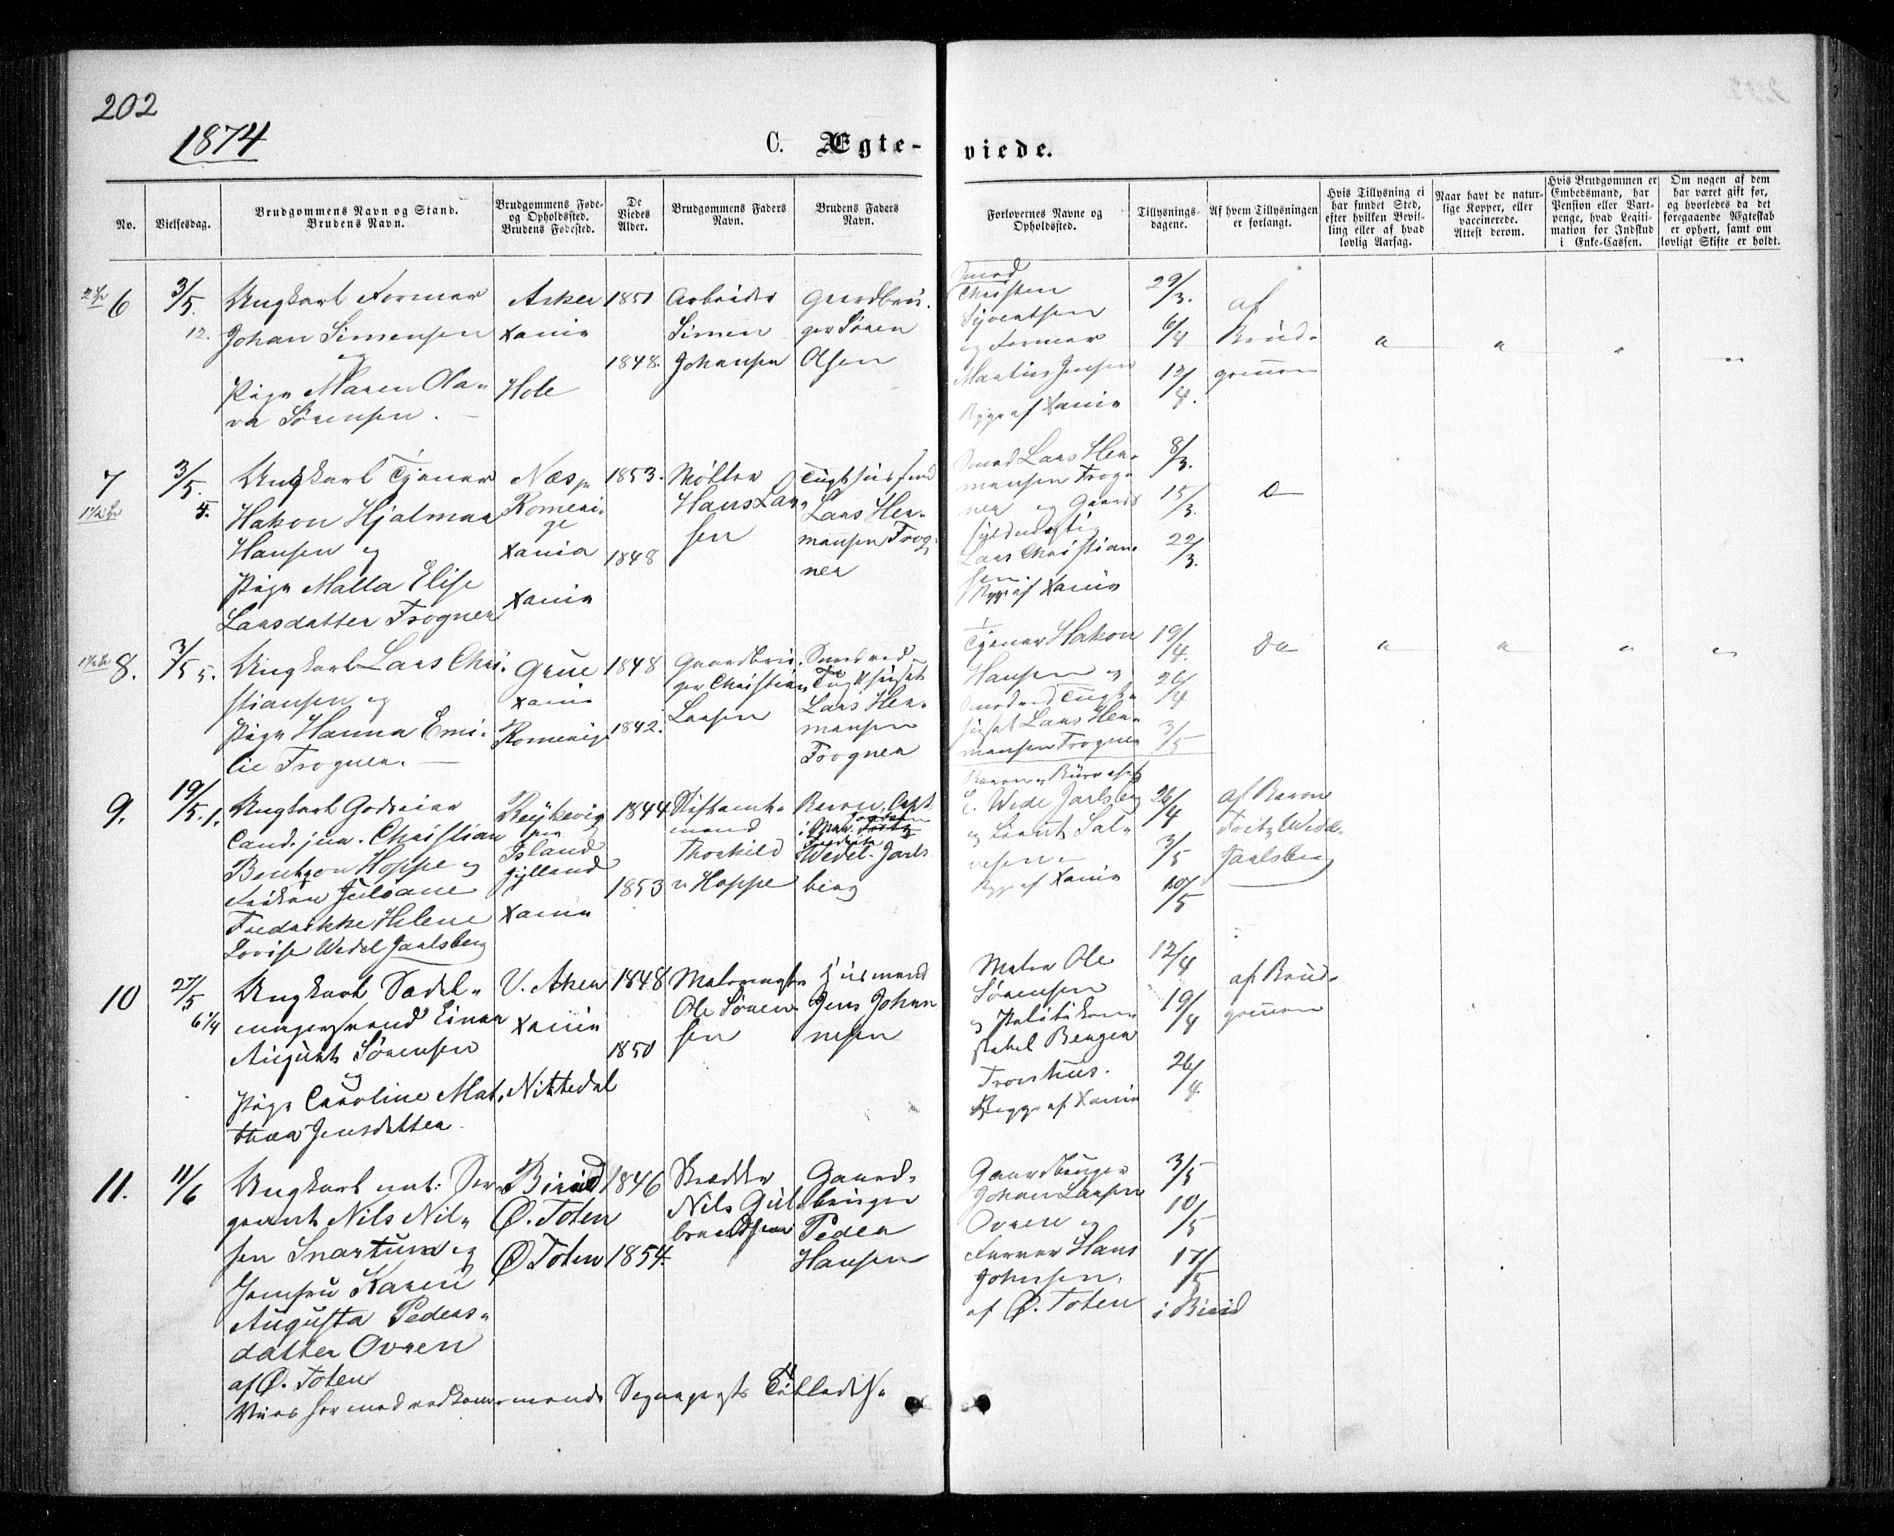 202
1874
C. Ægte-
viede.
No.
Vielsesdag.
Brudgommens Navn og Stand.
Brudens Navn.
Brudgommens Føde-
og Opholdssted.
Brudens Fødested.
De
Viedes
Alder.
Brudgommens Faders
Navn.
Brudens Faders
Navn.
Forlovernes Navne og
Opholdssted.
Tillysnings-
dagene.
Af hvem Tillysningen
er forlangt.
Hvis Tillysning ei
har fundet Sted,
efter hvilken Bevil-
ling eller af hvad
lovlig Aarsag.
Naar havt de natur-
lige Kopper, eller
vaccinerede.
Attest derom.
Hvis Brudgommen er
Embedsmand, har
Pension eller Vart-
penge, hvad Legiti-
mation for Indskud
i Enke-Cassen.
Om nogen af dem
har været gift før,
og hvorledes da det
foregaaende Ægteskab
er ophørt, samt om
lovligt Skifte er holdt.
6
3/5.
12.
Ungkarl Formar
Johan Simensen
og
Pige Maren Ola-
va Sørensen.
Asker
Xania
Hole
1851
1848.
Arbeider
Simen
Johansen
Gaardbru-
ger Søren
Olsen
Smed
Christen
Syvertsen
og Formar
Martius Jensen
Begge af Xania
29/3.
6/4
12/4.
af
Brud-
gommen
7
3/5.
5.
Ungkarl Tjener
Hakon Hjalmar
Hansen og
Pige Malla Elise
Larsdatter Frogner
Næs pa
Romeri-
ge
Xania
Xania
1853.
1848
Møller
Hans Lar-
sen
Tugthussmed
Lars Her-
mansen Frog-
ner
Smed Lars Her-
mansen Frog-
ner og Gaards-
fuldmægtig
Lars Christian-
sen
Begge af Xania
8/3.
15/3.
22/3.
8.
3/5
5.
Ungkarl Lars Chri-
stiansen og
Pige Hanna Emi-
lie Frogner.
Grue
Xania
Romerige
1848
1842.
Gaardbru-
ger Christian
Larsen
Smed ved
Tugthuset
Lars Her-
mansen
Frogner
Tjener Hakon
Hansen og
Smed ved Tugt-
huset Lars Her-
mansen Frogner
19/4.
26/4
3/5
Do
9.
19/5.
1.
Ungkarl Godseier
Cand. jur. Christian
Bentzon Hoppe og
Frøken Juliane
Fredrikke Helene
Lovise Wedel Jarlsberg
Reykevig
paa
Island
Jylland
Xania
1844
1853
Stiftamt-
mand
Thorkild
Hoppe
Baron, Capt.
i Mar.
Wedel-Jarls
berg
Wedel Jarlsberg
og
Begge af Xania
26/4
3/5
10/5
af Baron
Fritz Wedel
Jarlsberg
10
27/5
6 1/4
Ungkarl Sadel-
magersvend Einar
August Sørensen
og
Pige Caroline Mat-
thea Jensdatter.
V. Aker
Xania
Nittedal
1848
1850
Malermester
Ole Søren-
sen
Husmand
Jens Johan
nesen
Maler Ole
Sørensen
og Politikon-
stabel Berger
Troshus.
Begge af Xania
12/4
19/4
26/4
af Brud-
gommen
11.
11/6
Ungkarl nat: Ser-
geant Nils Nil-
sen Snartum og
Jomfru Karen
Augusta Peders-
datter Ovren
af Ø. Toten
Birid
Ø. Toten
Ø Toten
1846
1854.
Skrædder
Nils Gul
brandsen
Gaard-
bruger
Peder
Hansen
Gaardbruger
Johan Larsen
Ovren og
Farver Hans
Johnsen,
af Ø. Toten
3/5
10/5
17/5
i Birid
Vies her med vedkommende Sognepræsts Tilladelse